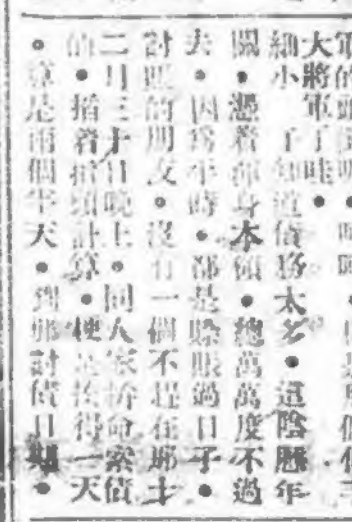 大將軍了哇●
細小 了知道債務太多●這陰曆年
關●憑着渾身本領●總萬萬度不過
去●因爲平時●都是賒賬過日子●
討賬的朋友●沒有一個不趕在那十
二月三十日晚上●同人家拚命索債
的●掐着指頭計算●挨得一天
●算是兩個半天●到那討債日期●